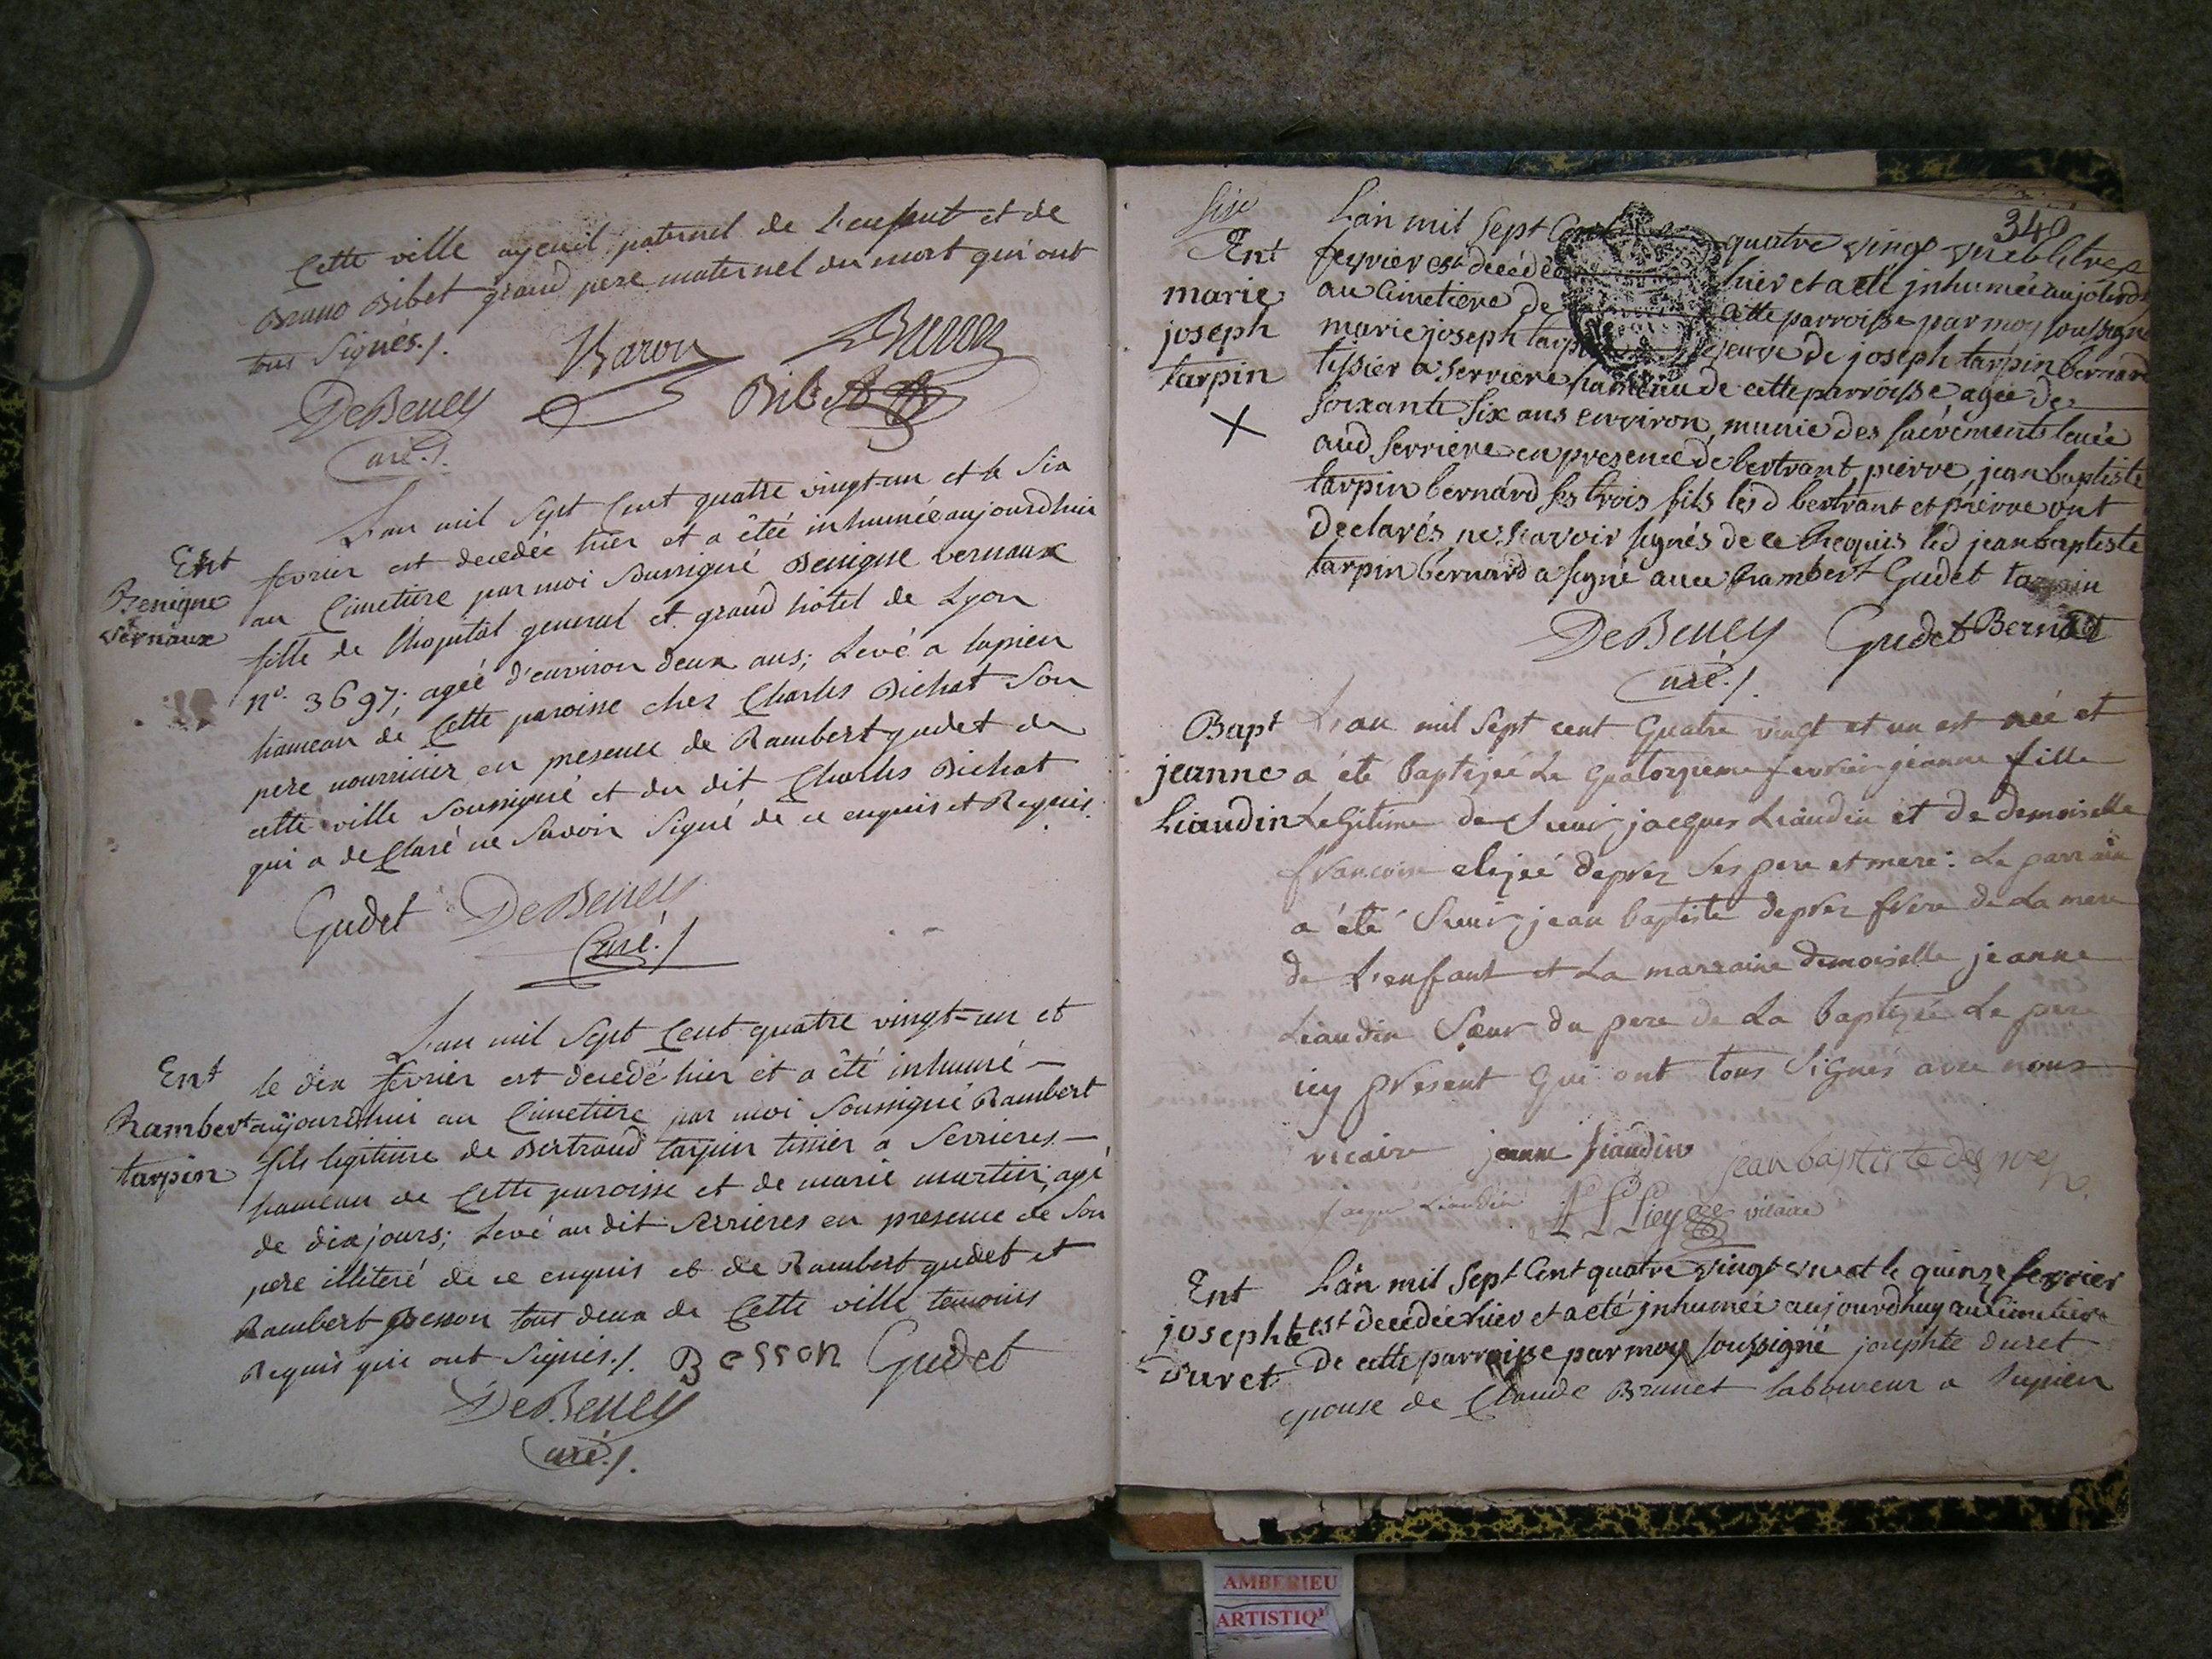 Cette ville ayeuil paternel de l'enfant et de
Bruno Bibet grand pere maternel du mort qui ont
tous signés./.
Baron
Buron
DeBeney
Bibet
Curé./.
L'an mil sept Cent quatre vingt-un et le six
Ent
fevrier est decedée hier et a étée inhumée aujourdhui
Benigne
au Cimetiere par moi soussigné Benigne vernaux
vernaux
fille de lhopital general et grand hôtel de Lyon
n°. 3697; agée d'environ deux ans; Levé a lupieu
hameau de Cette paroisse chez Charles Bichat son
pere nourricier en presence de Rambert gudet de
cette ville soussigné et du dit Charles Bichat
qui a deClaré ne savoir signé de ce enquis et Requis.
Gudet DeBeney
Curé./
L'an mil sept Cent quatre vingt=un et
Ent
le dix fevrier est decedé hier et a été inhumé —
Rambert
aujourdhui au Cimetiere par moi soussigné Rambert
tarpin
fils legitime de Bertrand tarpin tissier a serrieres —
hameau de Cette paroisse et de marie martin, agé
de dix jours; Levé au dit serrieres en presence de son
pere illiteré de ce enquis et de Rambert gudet et
Rambert Besson tous deux de Cette ville temoins
Requis qui ont signés./. Besson Gudet
DeBeney
Curé./.
340
Ent
marie
joseph
tarpin
X
Lan mil sept Cent quatre vingt
fevrier est decedée hier et a eté inhumée aujourd
au cimetiere de cette parroisse par moy soussigné
marie joseph tarpin veuve de joseph tarpin bernard
tissier a serriere hameau de cette parroisse agée de
soixante six ans environ, munie des sacrements levée
aud serriere en presence de bertrant, pierre, jean baptiste
tarpin bernard ses trois fils lesd bertrant et pierre ont
declarés ne scavoir signés de ce requis led jean baptiste
tarpin bernard a signé avec Rambert Gudet tarpin
DeBeney Gudet Bernard
Curé./.
Bapt
jeanne
Liaudin
L'an mil sept cent quatre vingt et un est née et
a été baptisée Le quatorzieme fevrier jeanne fille
Legitime de sieur jacques Liaudin et de demoiselle
francoise elizée deprez ses pere et mere: Le parrain
a été sieur jean baptiste deprez frere de La mere
de L'enfant et La marraine demoiselle jeanne
Liaudin sœur du pere de La baptizée Le pere
icy present qui ont tous signés avec nous
vicaire jeanne Liaudin jean baptiste deprez
jacque Liaudin vicaire
Ent
josephte
Duret
Lan mil sept Cent quatre vingt un et le quinze fevrier
est decedée hier et a eté jnhumée aujourdhuy au Cimetiere
De cette parroisse par moy soussigné josephte duret
epouse de Claude Brunet laboureur a lupieu
AMBERIEU
ARTISTIQ